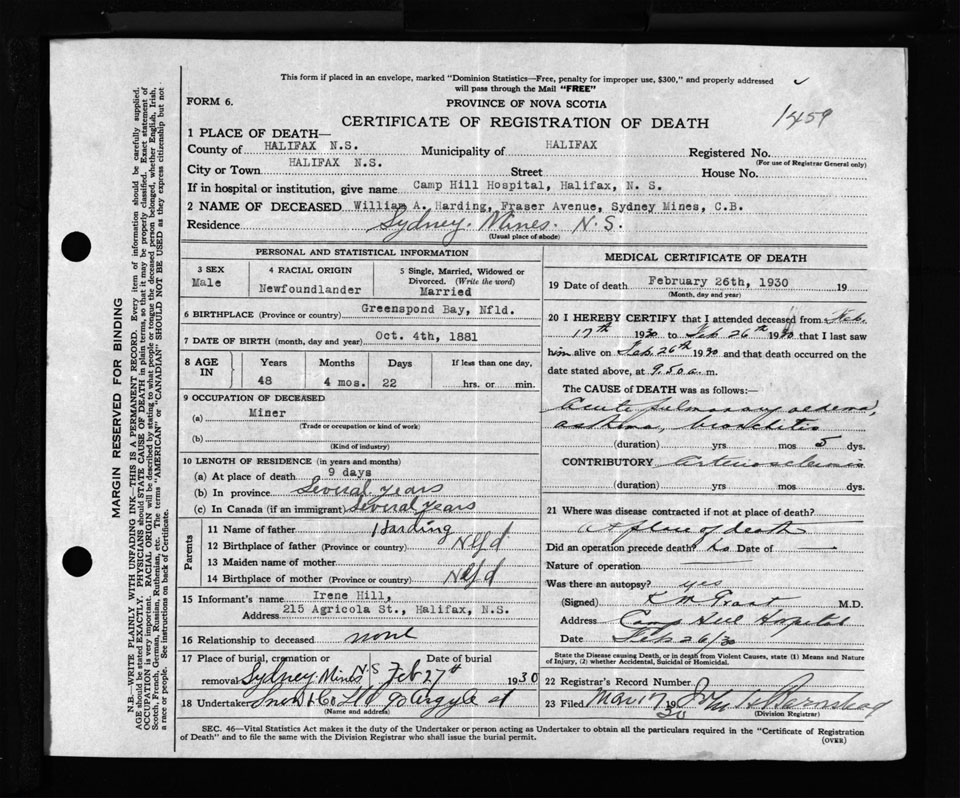 This form if placed in an envelope, marked "Dominion Statistics—Free, penalty for improper use, $300," and properly addressed
will pass through the Mail "FREE"
FORM 6.
PROVINCE OF NOVA SCOTIA
CERTIFICATE OF REGISTRATION OF DEATH
1459
1 PLACE OF DEATH—
County of HALIFAX N.S. Municipality of HALIFAX Registered No.
(For use of Registrar General only)
City or Town HALIFAX N.S. Street House No.
If in hospital or institution, give name Camp Hill Hospital, Halifax, N. S.
2 NAME OF DECEASED William A. Harding, Fraser Avenue, Sydney Mines, C.B.
Residence Sydney Mines. N.S.
(Usual place of abode)
PERSONAL AND STATISTICAL INFORMATION
3 SEX
Male
4 RACIAL ORIGIN
Newfoundlander
5 Single, Married, Widowed or
Divorced. (Write the word)
Married
6 BIRTHPLACE (Province or country) Greenspond Bay, Nfld.
7 DATE OF BIRTH (month, day and year) Oct. 4th, 1881
8 AGE IN
Years Months Days If less than one day,
48 4 mos. 22 hrs. or min.
9 OCCUPATION OF DECEASED
(a) Miner
(Trade or occupation or kind of work)
(b)
(Kind of industry)
10 LENGTH OF RESIDENCE (in years and months)
(a) At place of death 9 days
(b) In province Several years
(c) In Canada (if an immigrant) Several years
Parents
11 Name of father Harding
12 Birthplace of father (Province or country) Nfld
13 Maiden name of mother
14 Birthplace of mother (Province or country) Nfld
15 Informant's name Irene Hill,
Address 215 Agricola St., Halifax, N.S.
16 Relationship to deceased none
17 Place of burial, cremation or Date of burial
removal Sydney Mines N.S Feb 27th 1930
18 Undertaker Snow & Co Ltd 90 Argyle st
(Name and address)
MEDICAL CERTIFICATE OF DEATH
19 Date of death February 26th, 1930 19
(Month, day and year)
20 I HEREBY CERTIFY that I attended deceased from Feb.
17th 1930 to Feb 26th 1930 that I last saw
him alive on Feb. 26th 1930 and that death occurred on the
date stated above, at 9.50 a. m.
The CAUSE OF DEATH was as follows:
Acute pulmonary oedema,
asthma, bronchitis
(duration) yrs mos 5 dys.
CONTRIBUTORY Arteriosclerosis
(duration) yrs. mos. dys.
21 Where was disease contracted if not at place of death?
At place of death
Did an operation precede death? No Date of —
Nature of operation —
Was there an autopsy? yes
(Signed) K M Grant M.D.
Address Camp Hill Hospital
Date Feb 26/30
State the Disease causing Death, or in death from Violent Causes, state (1) Means and Nature
of Injury, (2) whether Accidental, Suicidal or Homicidal.
22 Registrar's Record Number
23 Filed Mar 17 1930 John
(Division Registrar)
SEC. 46—Vital Statistics Act makes it the duty of the Undertaker or person acting as Undertaker to obtain all the particulars required in the "Certificate of Registration
of Death" and to file the same with the Division Registrar who shall issue the burial permit.
(OVER)
MARGIN RESERVED FOR BINDING
N.B.—WRITE PLAINLY WITH UNFADING INK—THIS IS A PERMANENT RECORD. Every item of information should be carefully supplied.
AGE should be stated EXACTLY. PHYSICIANS should STATE CAUSE OF DEATH in plain terms, so that it may be properly classified. Exact statement of
OCCUPATION is very important. RACIAL ORIGIN will be described by stating to what people or tongue the deceased person belonged, whether English, Irish,
Scotch, French, German, Russian, Ruthenian, etc. The terms "AMERICAN" or "CANADIAN" SHOULD NOT BE USED as they express citizenship but not
a race or people. See instructions on back of Certificate.